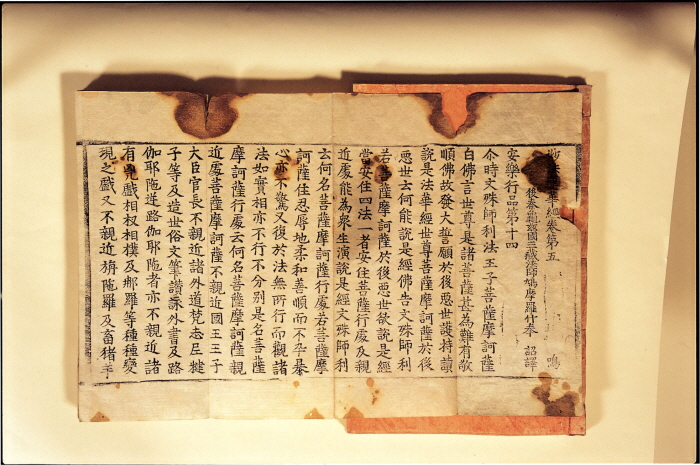 華經卷第五 鳴
後秦龜茲國三藏法師鳩摩羅什奉 詔譯
安樂行品第十四
尒時文殊師利法王子菩薩摩訶薩
白佛言世尊是諸菩薩甚為難有敬
順佛故發大誓願於後惡世護持讀
說是法華經世尊菩薩摩訶薩於後
惡世云何能說是經佛告文殊師利
若菩薩摩訶薩於後惡世欲說是經
當安住四法一者安住菩薩行處及親
近處能為衆生演說是經文殊師利
云何名菩薩摩訶薩行處若菩薩摩
訶薩住忍辱地柔和善順而不卒暴
心亦不驚又復於法無所行而觀諸
法如實相亦不行不分別是名菩薩
摩訶薩行處云何名菩薩摩訶薩親
近處菩薩摩訶薩不親近國王王子
大臣官長不親近諸外道梵志尼揵
子等及造世俗文筆讚詠外書及路
伽耶陁逆路伽耶陁者亦不親近諸
有兇戱相扠相撲及那羅等種種變
現之戱又不親近旃陁羅及畜猪羊